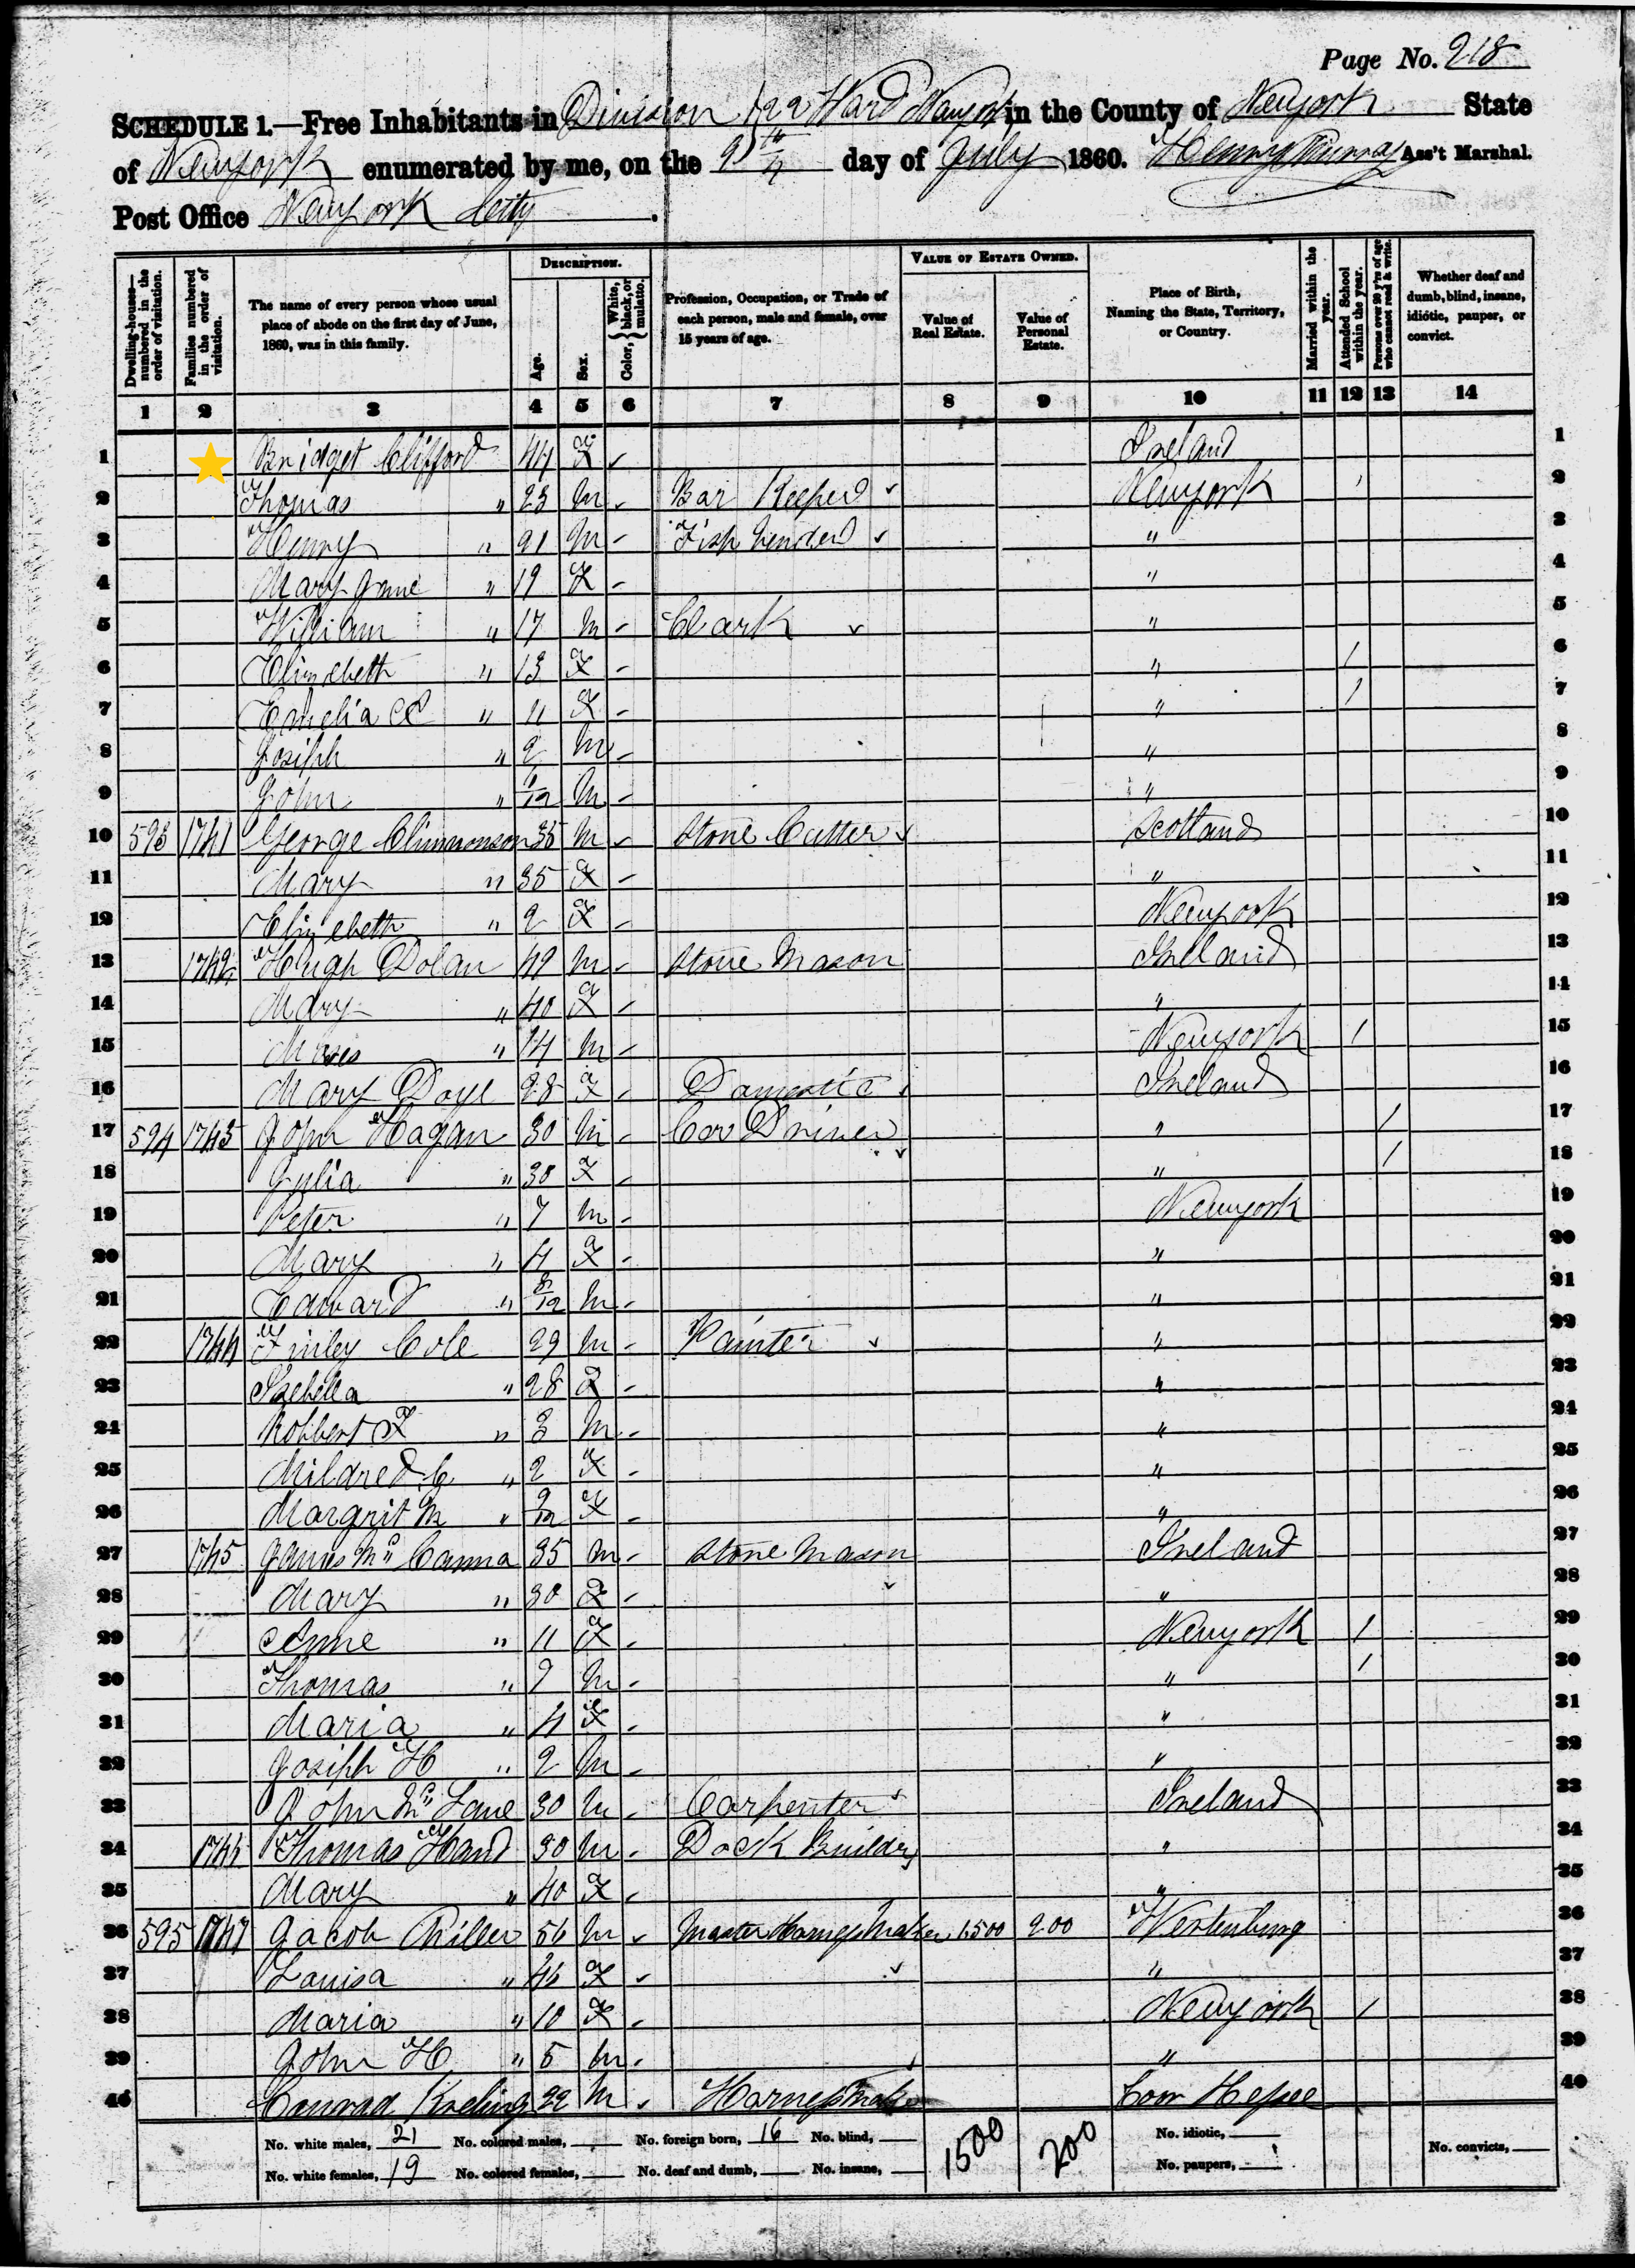 Page No. 218
SCHEDULE 1.—Free Inhabitants in Division 1 22 Ward Newyork in the County of Newyork State
of Newyork enumerated by me, on the day of July 1860. Henry Murray Ass't Marshal.
Post Office Newyork Citty
Dwelling-houses—numbered in the order of visitation. Families numbered in the order of visitation. The name of every person whose usual place of abode on the first day of June, 1860, was in this family. DESCRIPTION. Age. Sex. Color, {White, black, or mulatto. Profession, Occupation, or Trade of each person, male and female, over 15 years of age. VALUE OF ESTATE OWNED. Value of Real Estate. Value of Personal Estate. Place of Birth, Naming the State, Territory, or Country. Married within the year. Attended School within the year. Persons over 20 y'rs of age who cannot read & write. Whether deaf and dumb, blind, insane, idiotic, pauper, or convict.
1 2 3 4 5 6 7 8 9 10 11 12 13 14
1 Bridget Clifford 44 F Ireland 1
2 Thomas " 23 M Bar Keeper Newyork 2
3 Henry " 21 M Fish Vender " 3
4 Mary Jane " 19 F " 4
5 William " 17 M Clark " 5
6 Elizebeth " 13 F " / 6
7 Emelia " 11 F " / 7
8 Joseph " 2 M " 8
9 John " M " 9
10 593 1741 George 35 M Stone Cutter Scotland 10
11 Mary " 35 F " 11
12 Elizebeth " 2 F Newyork 12
13 1742 Hugh Dolan 49 M Stone Mason Ireland 13
14 Mary " 40 F " 14
15 " 14 M Newyork / 15
16 Mary Doyl 28 F Domestic Ireland 16
17 594 1743 John Hagan 30 M Car Driver " / 17
18 Gylia " 30 F " / 18
19 Peter " 7 M Newyork 19
20 Mary " 4 F " 20
21 Edward " 8/12 M " 21
22 1744 Finley Cole 29 M Painter " 22
23 Isebella " 28 F " 23
24 Robbert F " 3 M " 24
25 Mildred C " 2 F " 25
26 Margrit M " 9/12 F " 26
27 1745 James McCanna 35 M Stone Mason Ireland 27
28 Mary " 30 F " 28
29 Anne " 11 F Newyork / 29
30 Thomas " 7 M " / 30
31 Maria " 4 F " 31
32 Joseph H " 2 M " 32
33 John McLane 30 M Carpenter Ireland 33
34 1746 Thomas Hand 30 M Dock Builder " 34
35 Mary " 40 F " 35
36 595 1747 Jacob Riller 56 M Master Harness Maker 1500 200 Wertenburg 36
37 Louisa " 46 F " 37
38 Maria " 10 F Newyork / 38
39 John H " 5 M " 39
40 Conrad 22 M Harness Maker Coor Hessee 40
No. white males, 21 No. colored males, No. foreign born, 16 No. blind, 1500 200 No. idiotic,
No. white females, 19 No. colored females, No. deaf and dumb, No. insane, No. paupers, No. convicts,